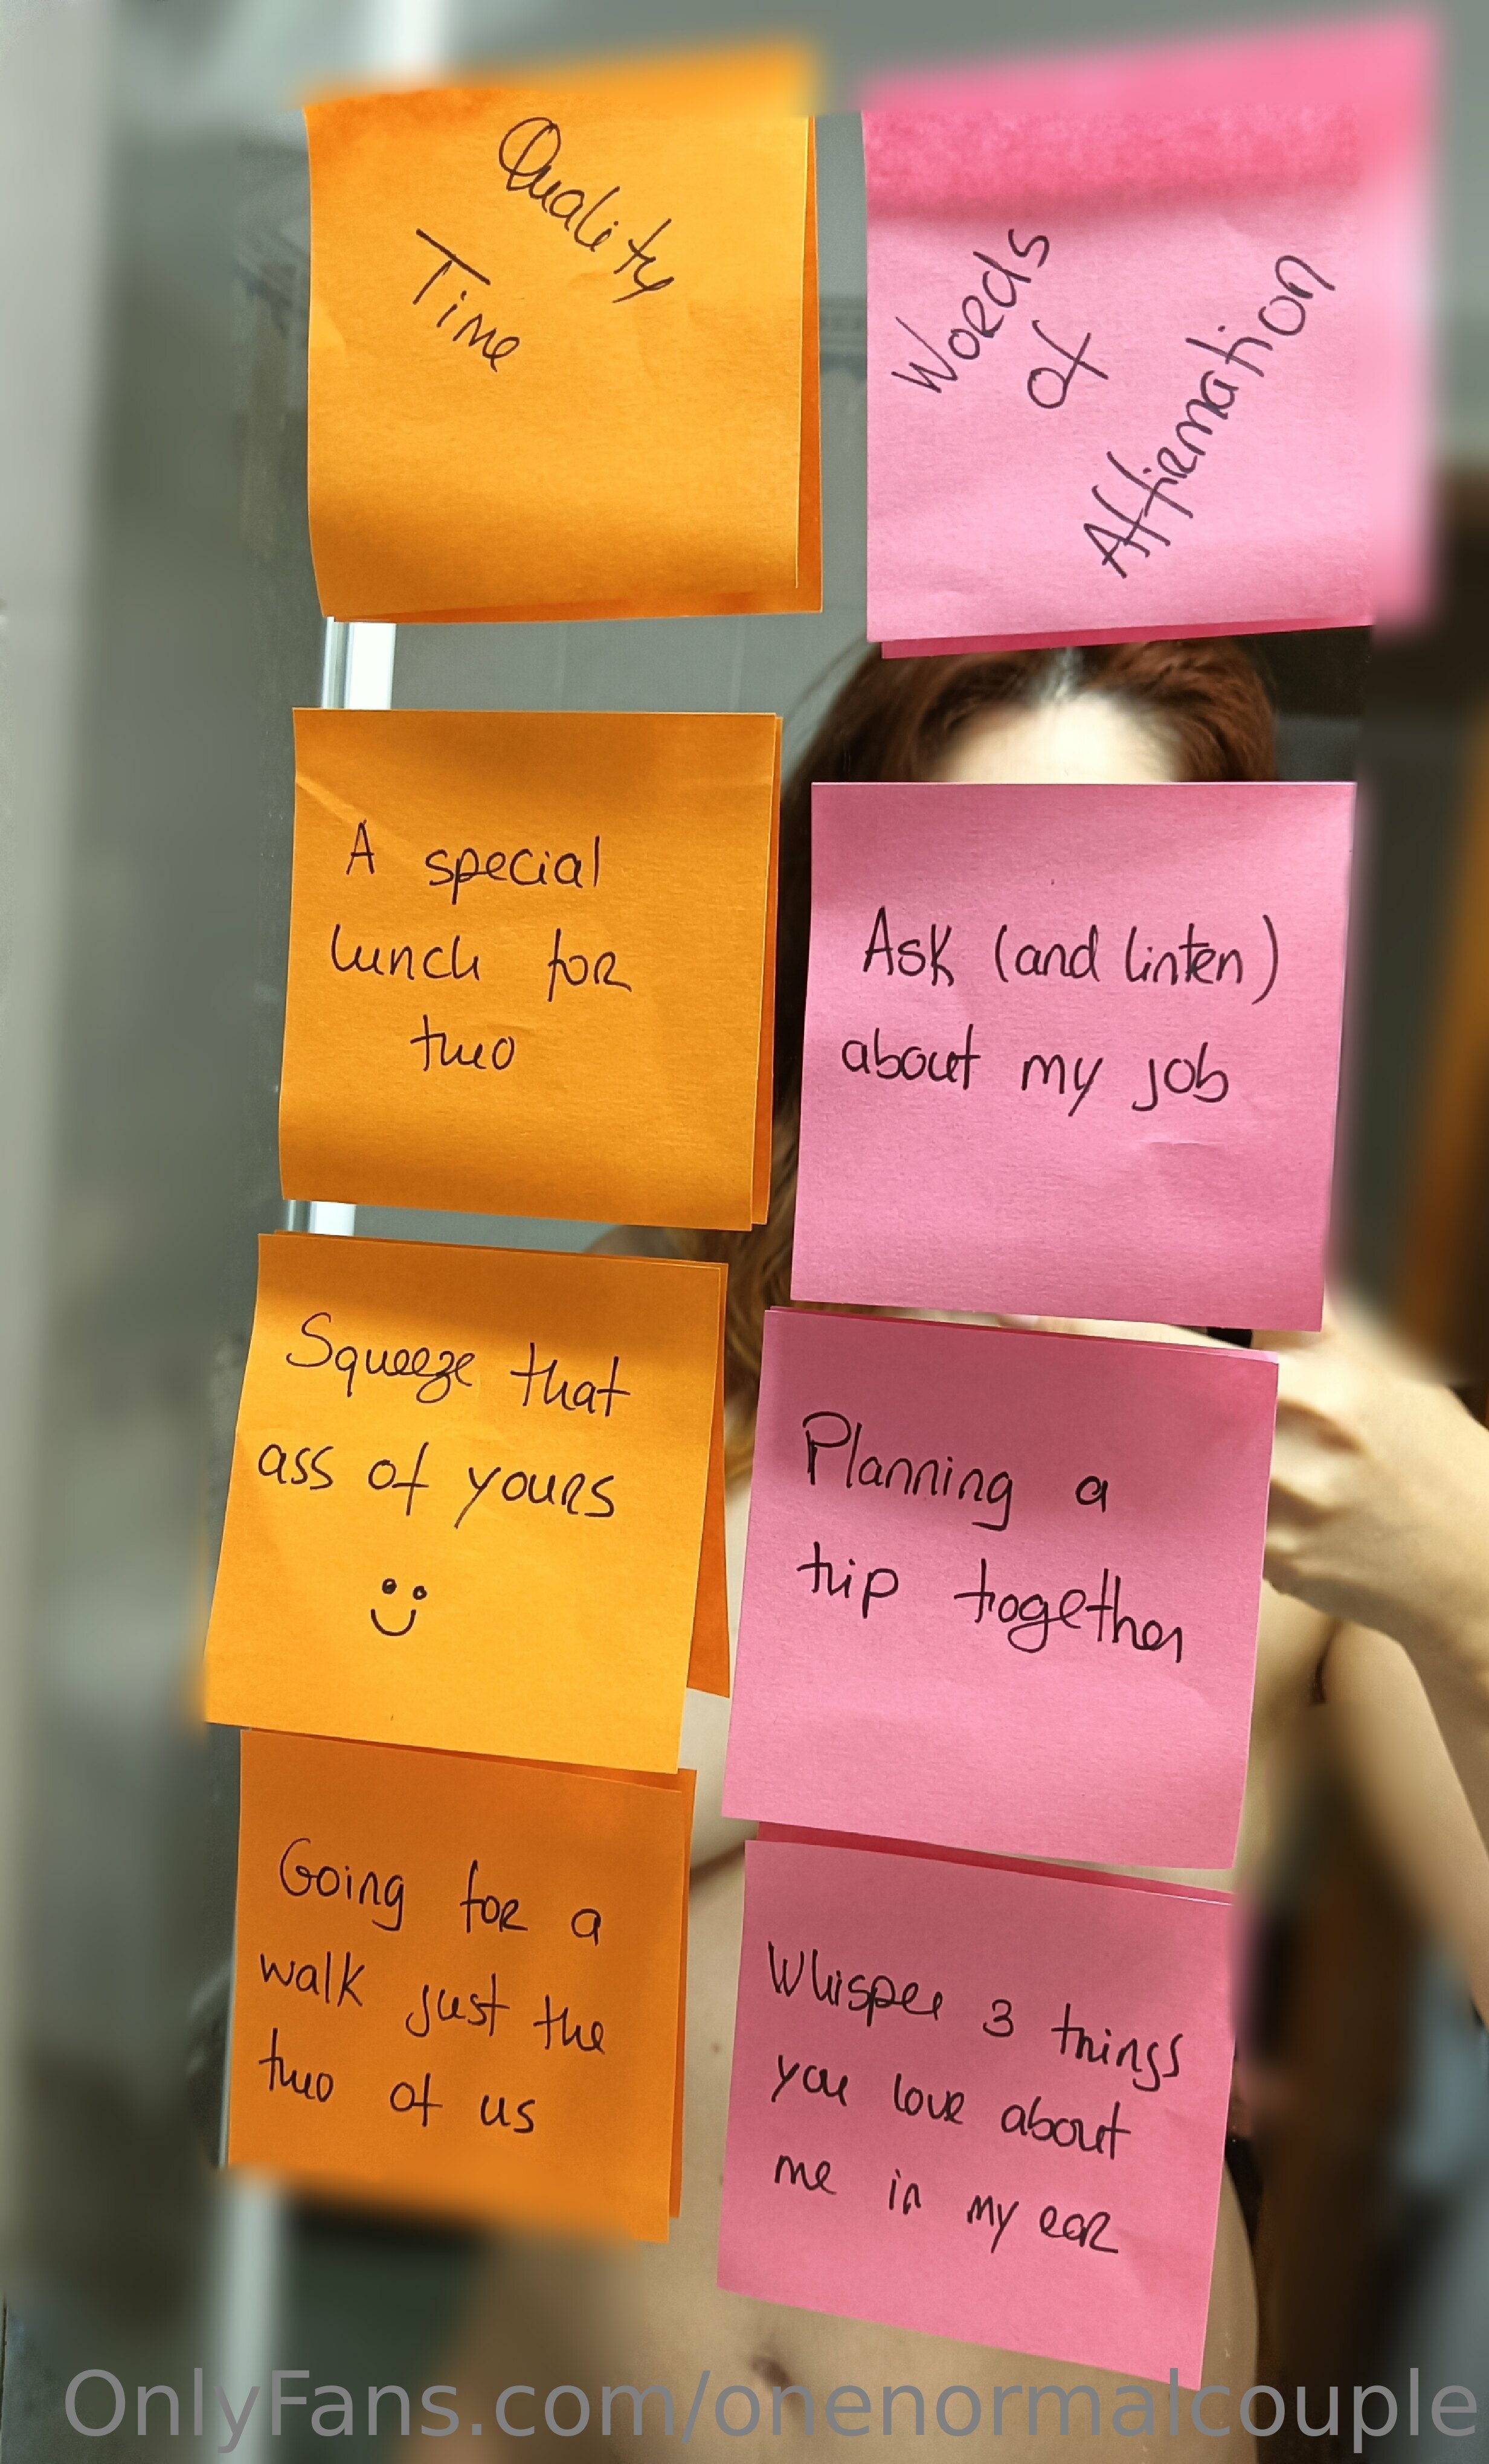 Quality
Time
Words
of
Affirmation
A special
lunch for
two
Ask (and linten)
about my job
Squeeze that
ass of yours
Planning a
trip together
Going for a
walk just the
two of us
Whisper 3 things
you love about
me in my ear
OnlyFans.com/onenormalcouple